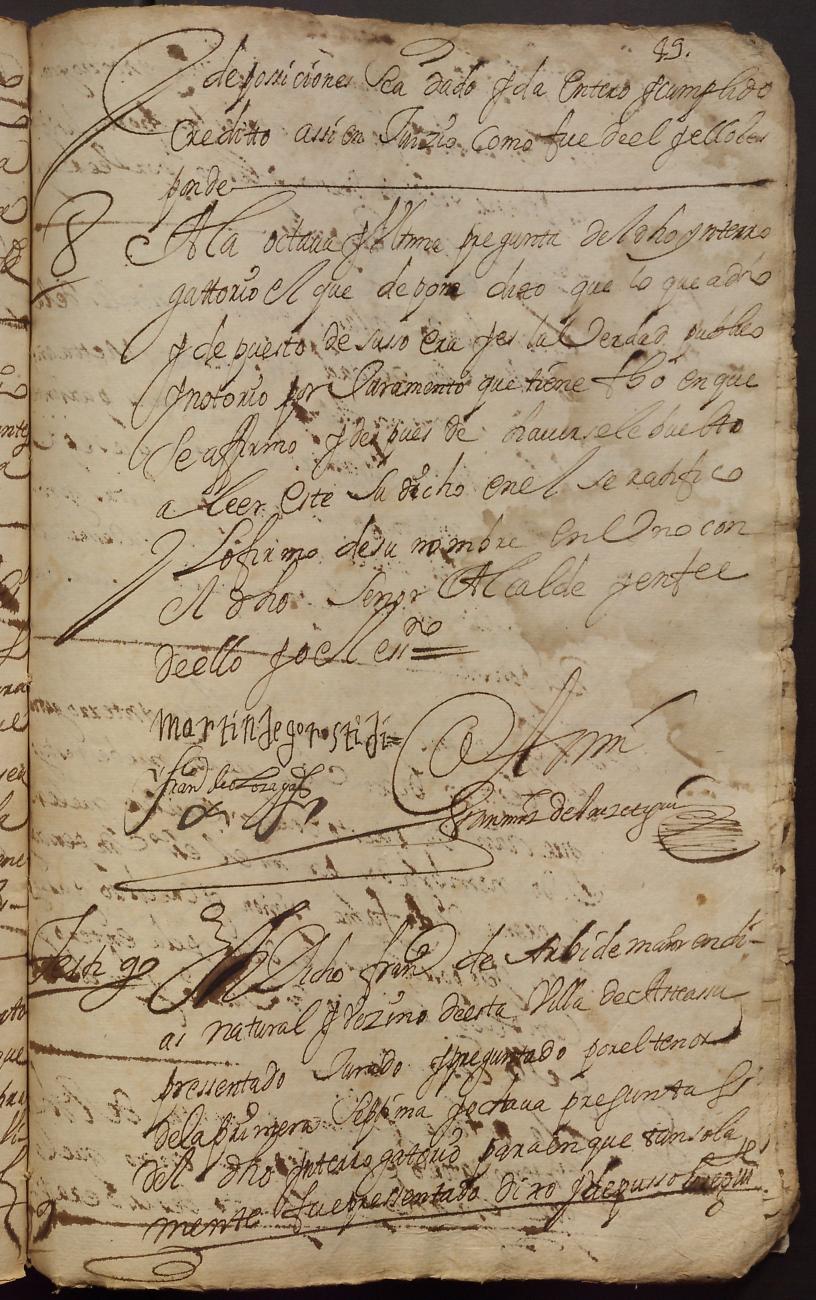 49.
deposiciones sea dado y da entero y cumplido
Creditto assi en Juizio como fue de el y ello res
ponde
8 A la octava y ultima pregunta del dho ynterro
gattorio el que depone dixo que lo que a dho
y depuesto de suso era y es la Verdad publico
y notorio por Juramento que tiene fho en que
se affirmo y despues de haversele buelto
a leer este su dicho en el se ratifico
y lo firmo de su nombre en Uno con
el dho Señor Alcalde y en fee
de ello yo el essno
Martin de gorostidi
Ante mi
Testigo El dicho franco de Arbide maior en di-
as natural y vezino de esta Villa de
pressentado Jurado y preguntado por el tenor
de la primera septima y octava preguntas
del dho ynterrogatorio para en que tan sola
mente fue pressentado dixo y depusso lo seguite